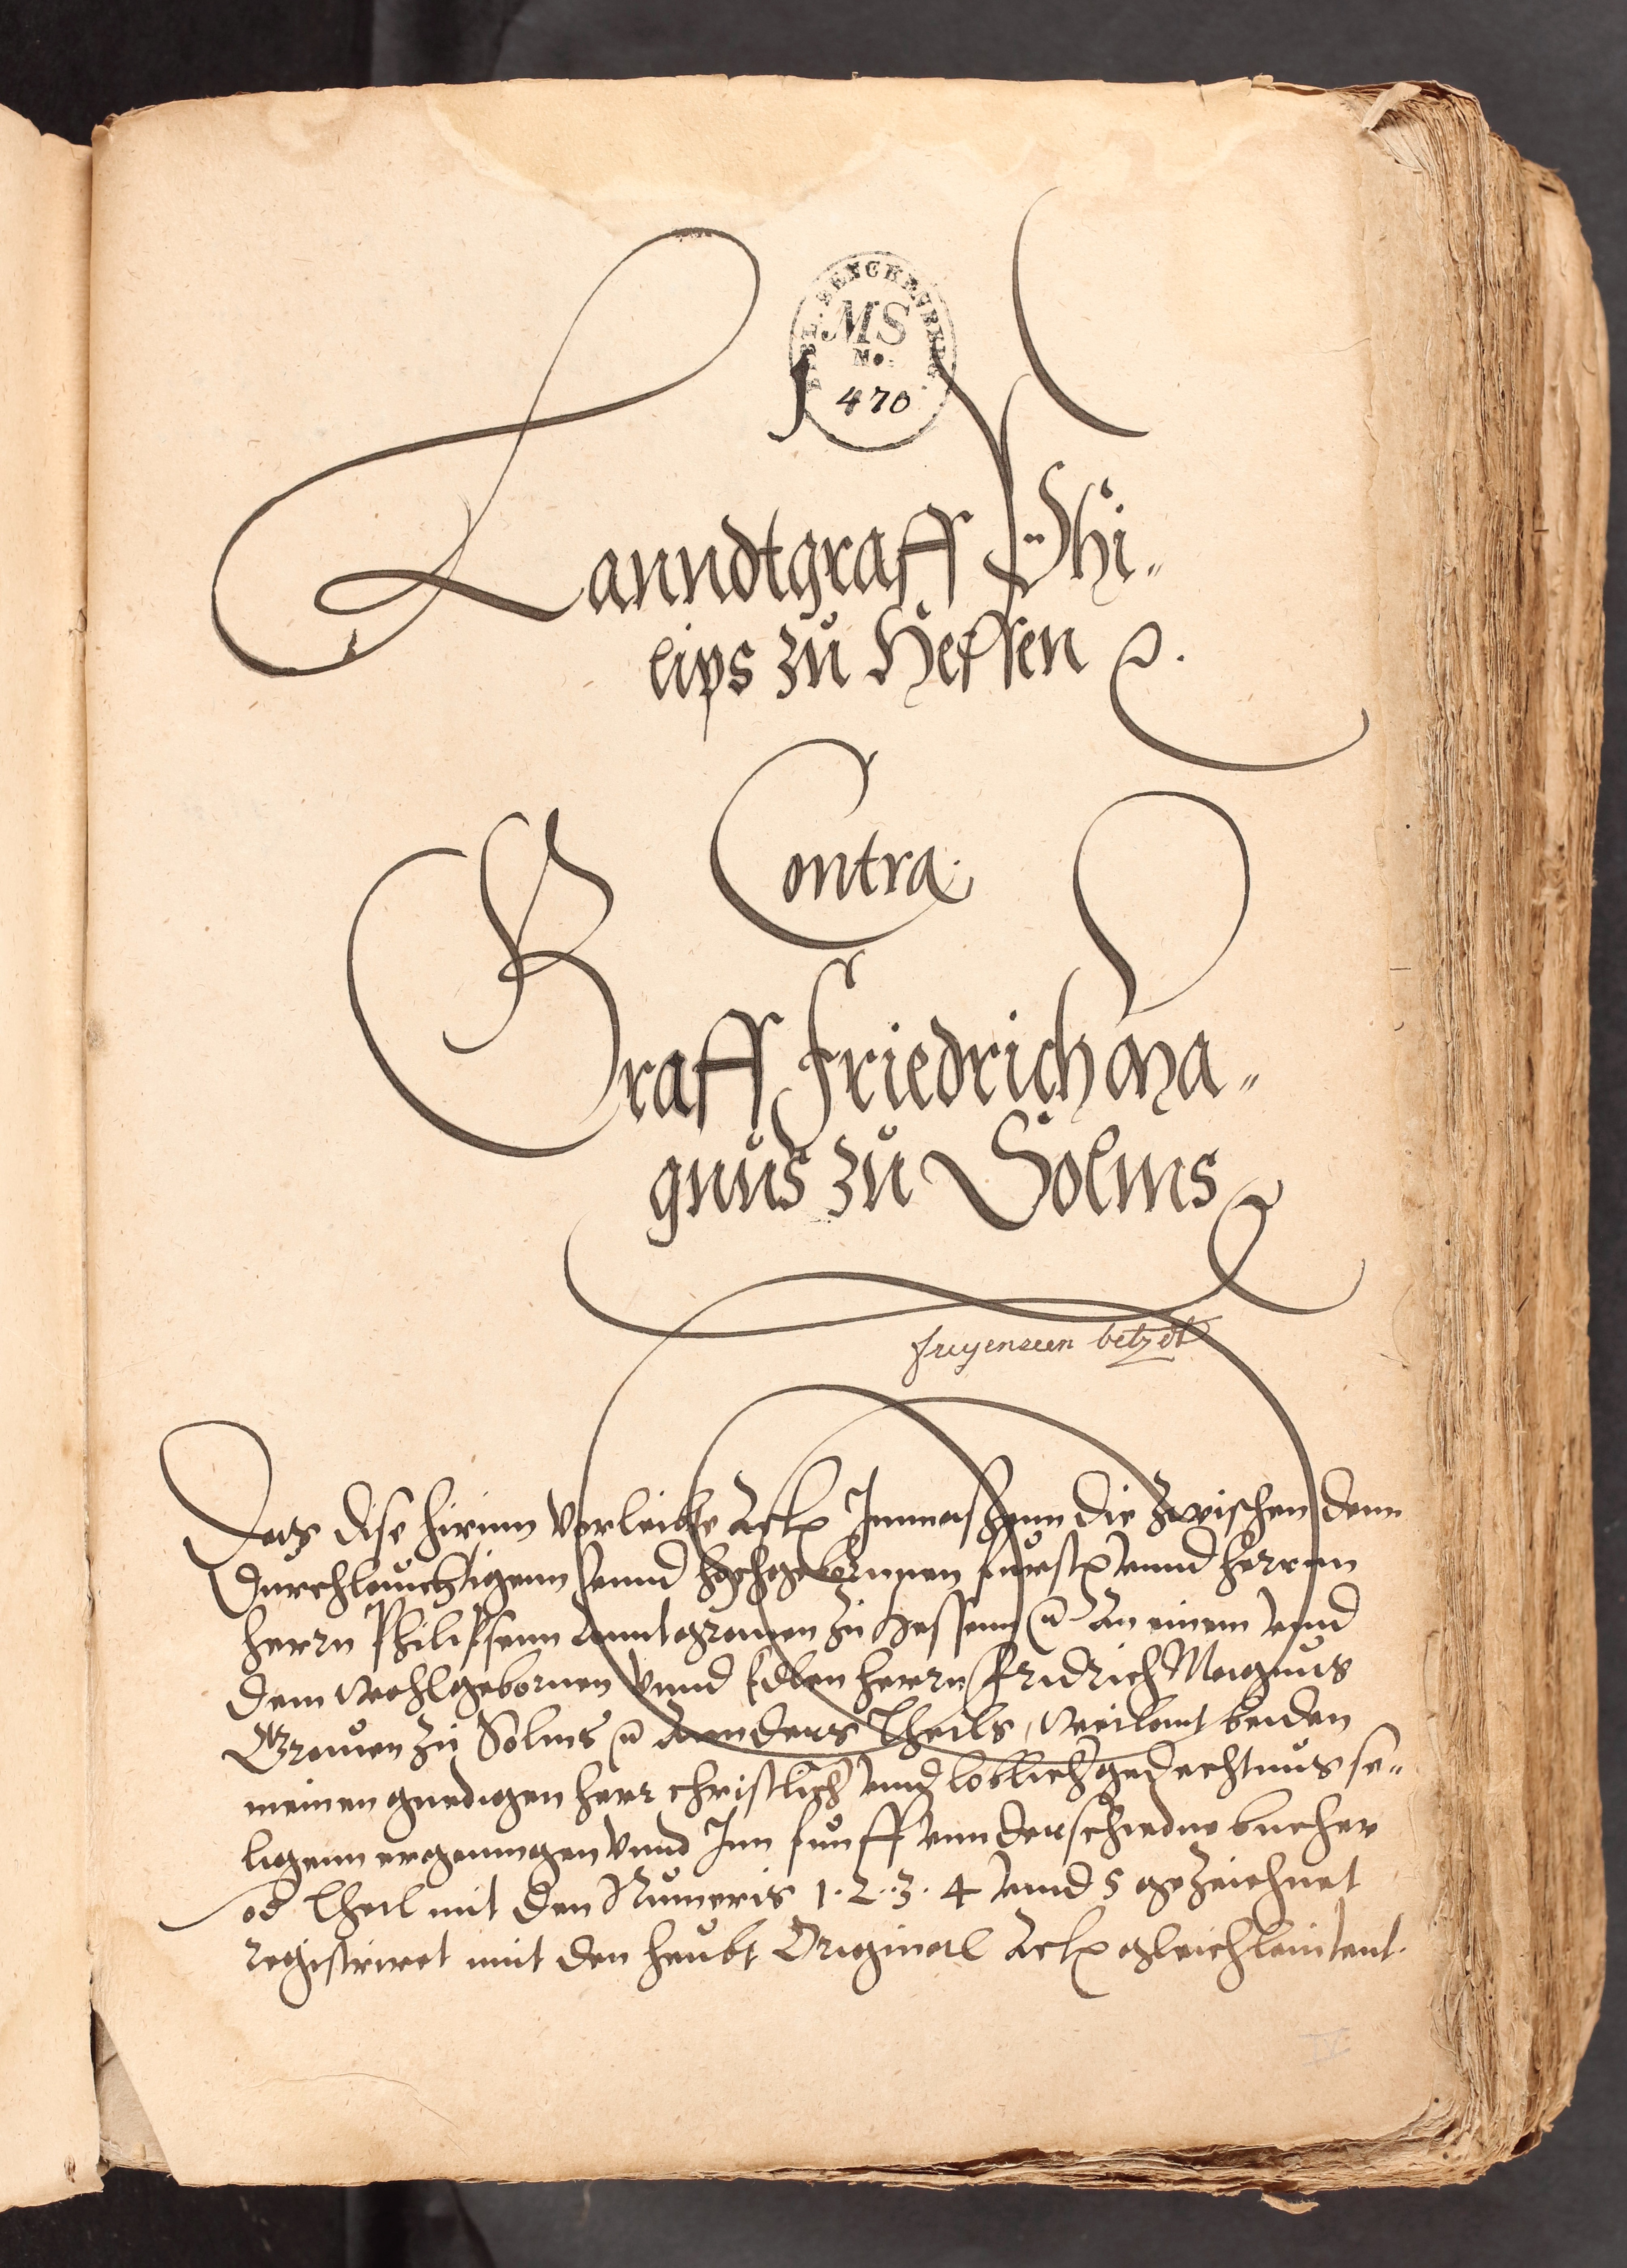 BIBL. SENCKENBERG.
MS
No.
470
1
Lanndtgraff Phi„
lips zů Hessen ꝛc.
Contra.
Graff Friedrich Ma„
gnus zů Solms ꝛc
freyenseen betzdt
Das dise hirinn verleibte Acta Innmassenn die zwischen denn
Durchleuchtigenn vnnd hochgebornnen furst vnnd herrnn
herrn Philipsenn Lanndtgrauen zu Hessenn ꝛc An einem vnnd
dem wohlgebornen vnnd Edlen herrn Fridrich Magnus
Grauen zu Solms ꝛc Annders Theils, weilant beiden
meinen gnedigen herr christlich vnnd loblich gedechtnus se„
ligenn ergangen vnnd Inn funff vnnderschiedne bucher
od Theil mit den Numeris 1. 2. 3. 4 vnnd 5 gezeichnet
registriret mit den heubt Original Acta gleichlautent.